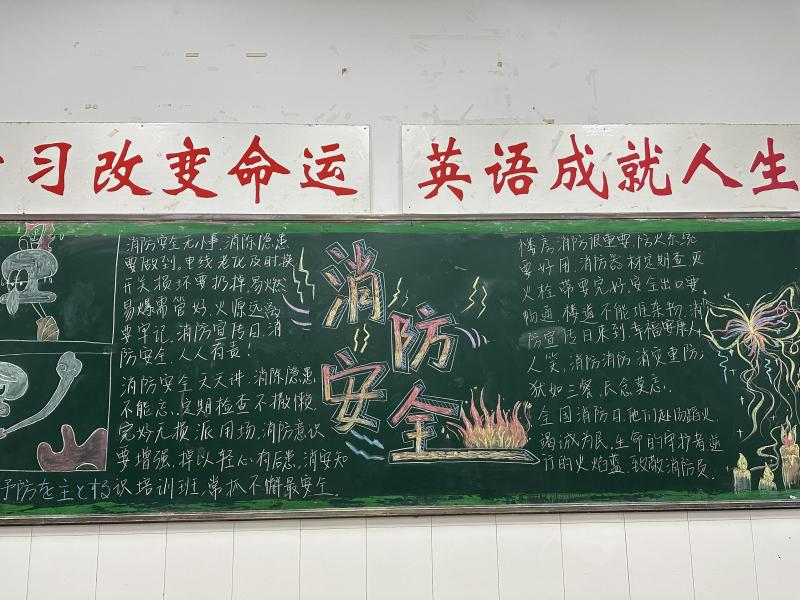 习改变命运
英语成就人生
消防安全无小事，消除隐患
要做到。电线老化及时换
开关损坏要扔掉，易燃
易爆需管好，火源远离
要牢记，消防宣传日，消
防安全，人人有责！
消防安全天天讲，消除隐患
不能忘，定期检查不撒懒，
完好无损派用场，消防意识
要增强，掉以轻心有后患，消安知
予防を主とする识培训班，常抓不懈最安全。
消防
安全
楼房消防很重要，防火系统
要好用，消防器材定期查，灭
火栓带要完好，安全出口要
畅通，楼道不能堆杂物，消
防宣传日来到，幸福
人笑，消防消防，消灾重防，
犹如三餐，长念莫忘。
全国消防日，他们赴汤蹈火，
竭诚为民，生命的守护者逆
行的火焰蓝，致敬消防员